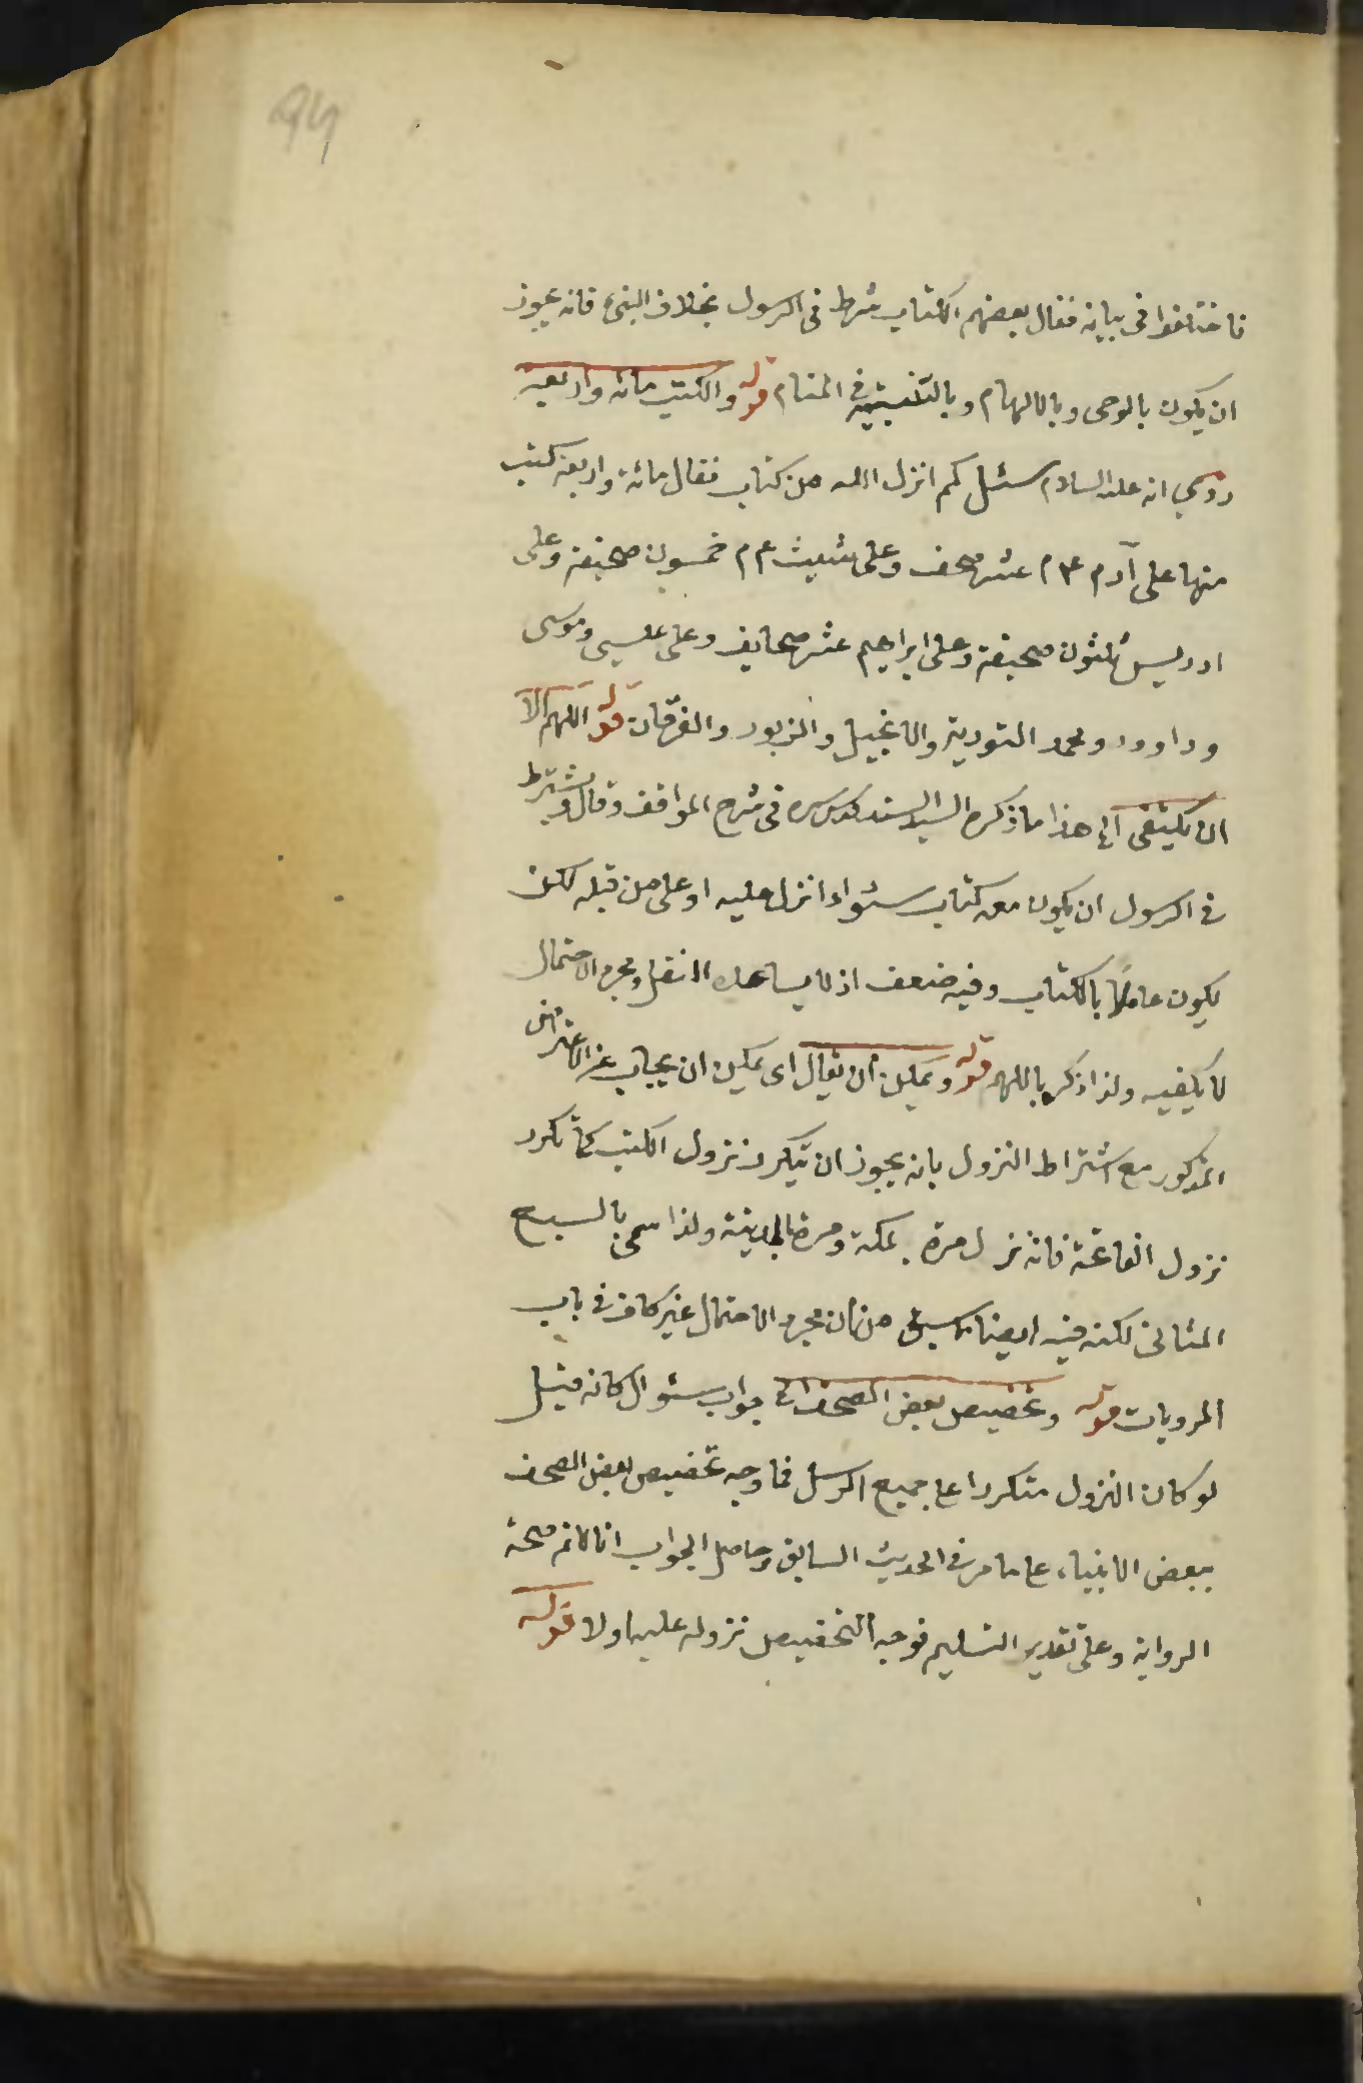 94
فاختلفوا فى بيانه فقال بعضهم الكتاب شرط فى الرسول بخلاف النبى فانه يجوز
ان يكون بالوحى وبالالهام وبالتنبيه فى المنام قوله والكتب مائة واربعة
روى انه عليه السلام سئل كم انزل الله من كتاب فقال مائة واربعة كتب
منها على آدم ع م عشر صحف وعلى شيث ع م خمسون صحيفة وعلى
ادريس ثلثون صحيفة وعلى ابراهيم عشر صحايف وعلى عيسى وموسى
وداوود ومحمد التورية والانجيل والزبور والفرقان قوله اللهم الا
ان يكتفى الخ هذا ما ذكره السيد السند قدس سره فى شرح المواقف وقال ويشترط
فى الرسول ان يكون معه كتاب سواء انزل عليه او على من قبله لكن
يكون عاملا بالكتاب وفيه ضعف اذ لا يساعده النقل ومجرد الاحتمال
لا يكفيه ولذا ذكر باللهم قوله ويمكن ان يقال اى يمكن ان يجاب عن الاعتراض
المذكور مع اشتراط النزول بانه يجوز ان يتكرر نزول الكتب كما تكرر
نزول الفاتحة فانه نزل مرة بمكة ومرة بالمدينة ولذا سمى بالسبع
المثانى لكنه فيه ايضا ما سبق من ان مجرد الاحتمال غير كاف فى باب
المرويات قوله وتخصيص بعض الصحف الخ جواب سئوال كانه قيل
لو كان النزول متكررا على جميع الرسل فما وجه تخصيص بعض الصحف
ببعض الانبياء على ما مر فى الحديث السابق وحاصل الجواب انا لانم صحة
الرواية وعلى تقدير التسليم فوجه التخصيص نزوله عليه اولا قوله